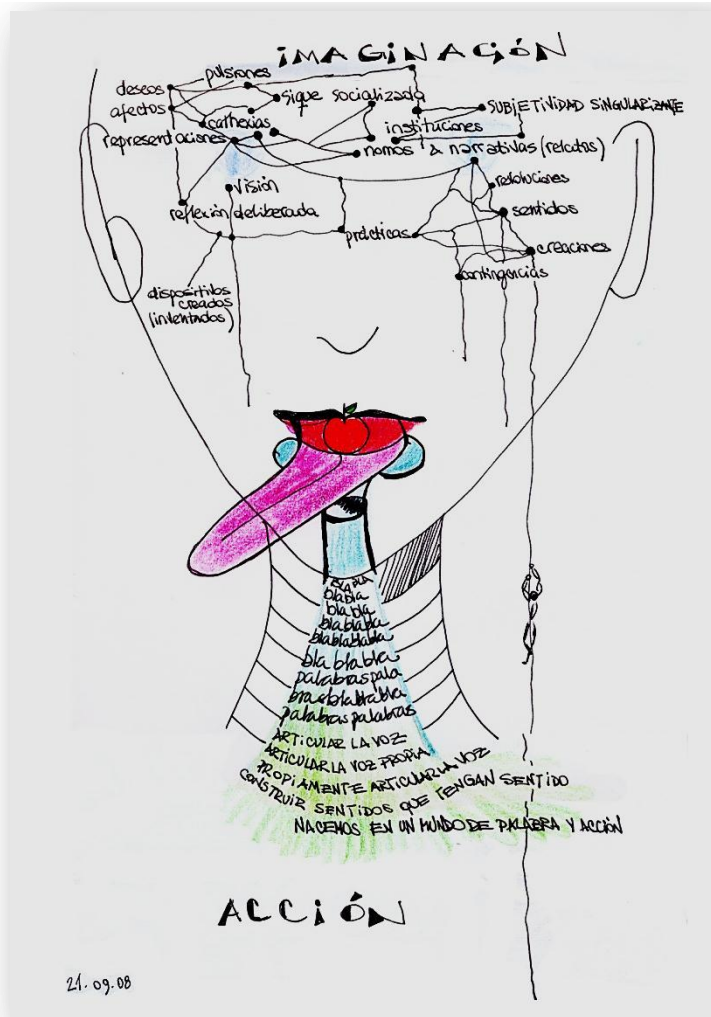 iMAGiNACiÓN
pulsiones
deseos
sique socializada
afectos
SUBJETIVIDAD SINGULARIZANTE
cathexias
instituciones
representaciones
nomos & narrativas (relatos)
visión
reflexión deliberada
prácticas
sentidos
creaciones
contingencias
dispositivos
creados
(inventados)
BLABLA
blabla
bla bla
blablabla
blablablabla
bla blabla
palabraspala
palabraspalabras
ARTiCULAR LA VOZ
ARTICULAR LA VOZ PROPIA
PROPIAMENTE ARTICULAR LA VOZ
CONSTRUIR SENTIDOS QUE TENGAN SENTIDO
NACEMOS EN UN MUNDO DE PALABRA Y ACCIÓN
ACCiÓN
21.09.08